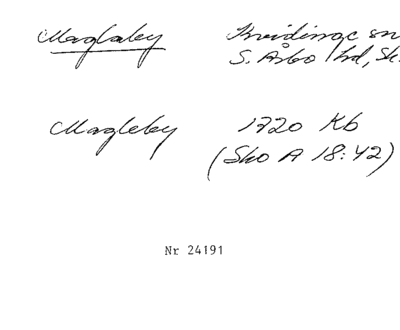 Maglaby Kvidinge sn
S. Åsbo hd, Sk.
Magleby 1720 Kb
(Sko A 18:42)
Nr 24191